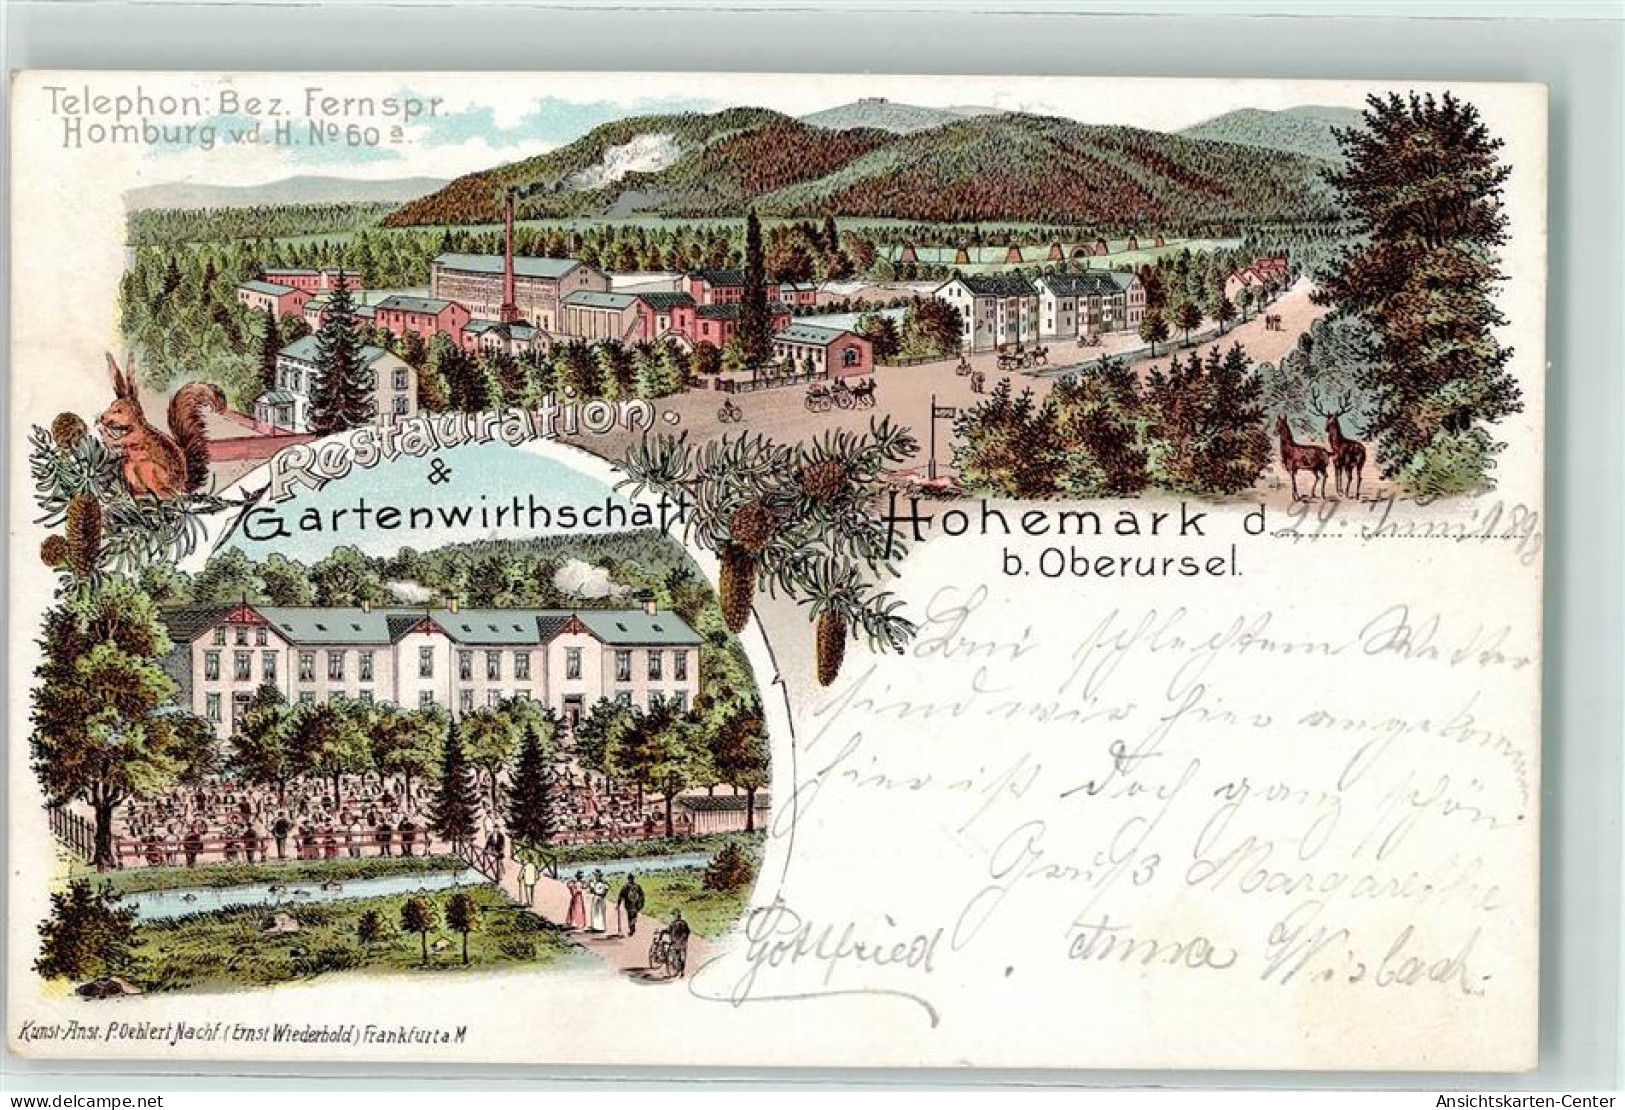 Telephon: Bez. Fernspr.
Homburg v.d.H. No 60 a.
Restauration.
&
Gartenwirthschaft
Hohemark d. 29. Juni 1898
b. Oberursel.
Bei schlechtem Wetter
sind wir hier angekommen
hier ist doch ganz schön
Gruß Margarethe
Gottfried . Anna Wisbach.
Kunst-Anst. P. Oehlert Nachf. (Ernst Wiederhold) Frankfurt a. M
www.delcampe.net
mausch17
Ansichtskarten-Center